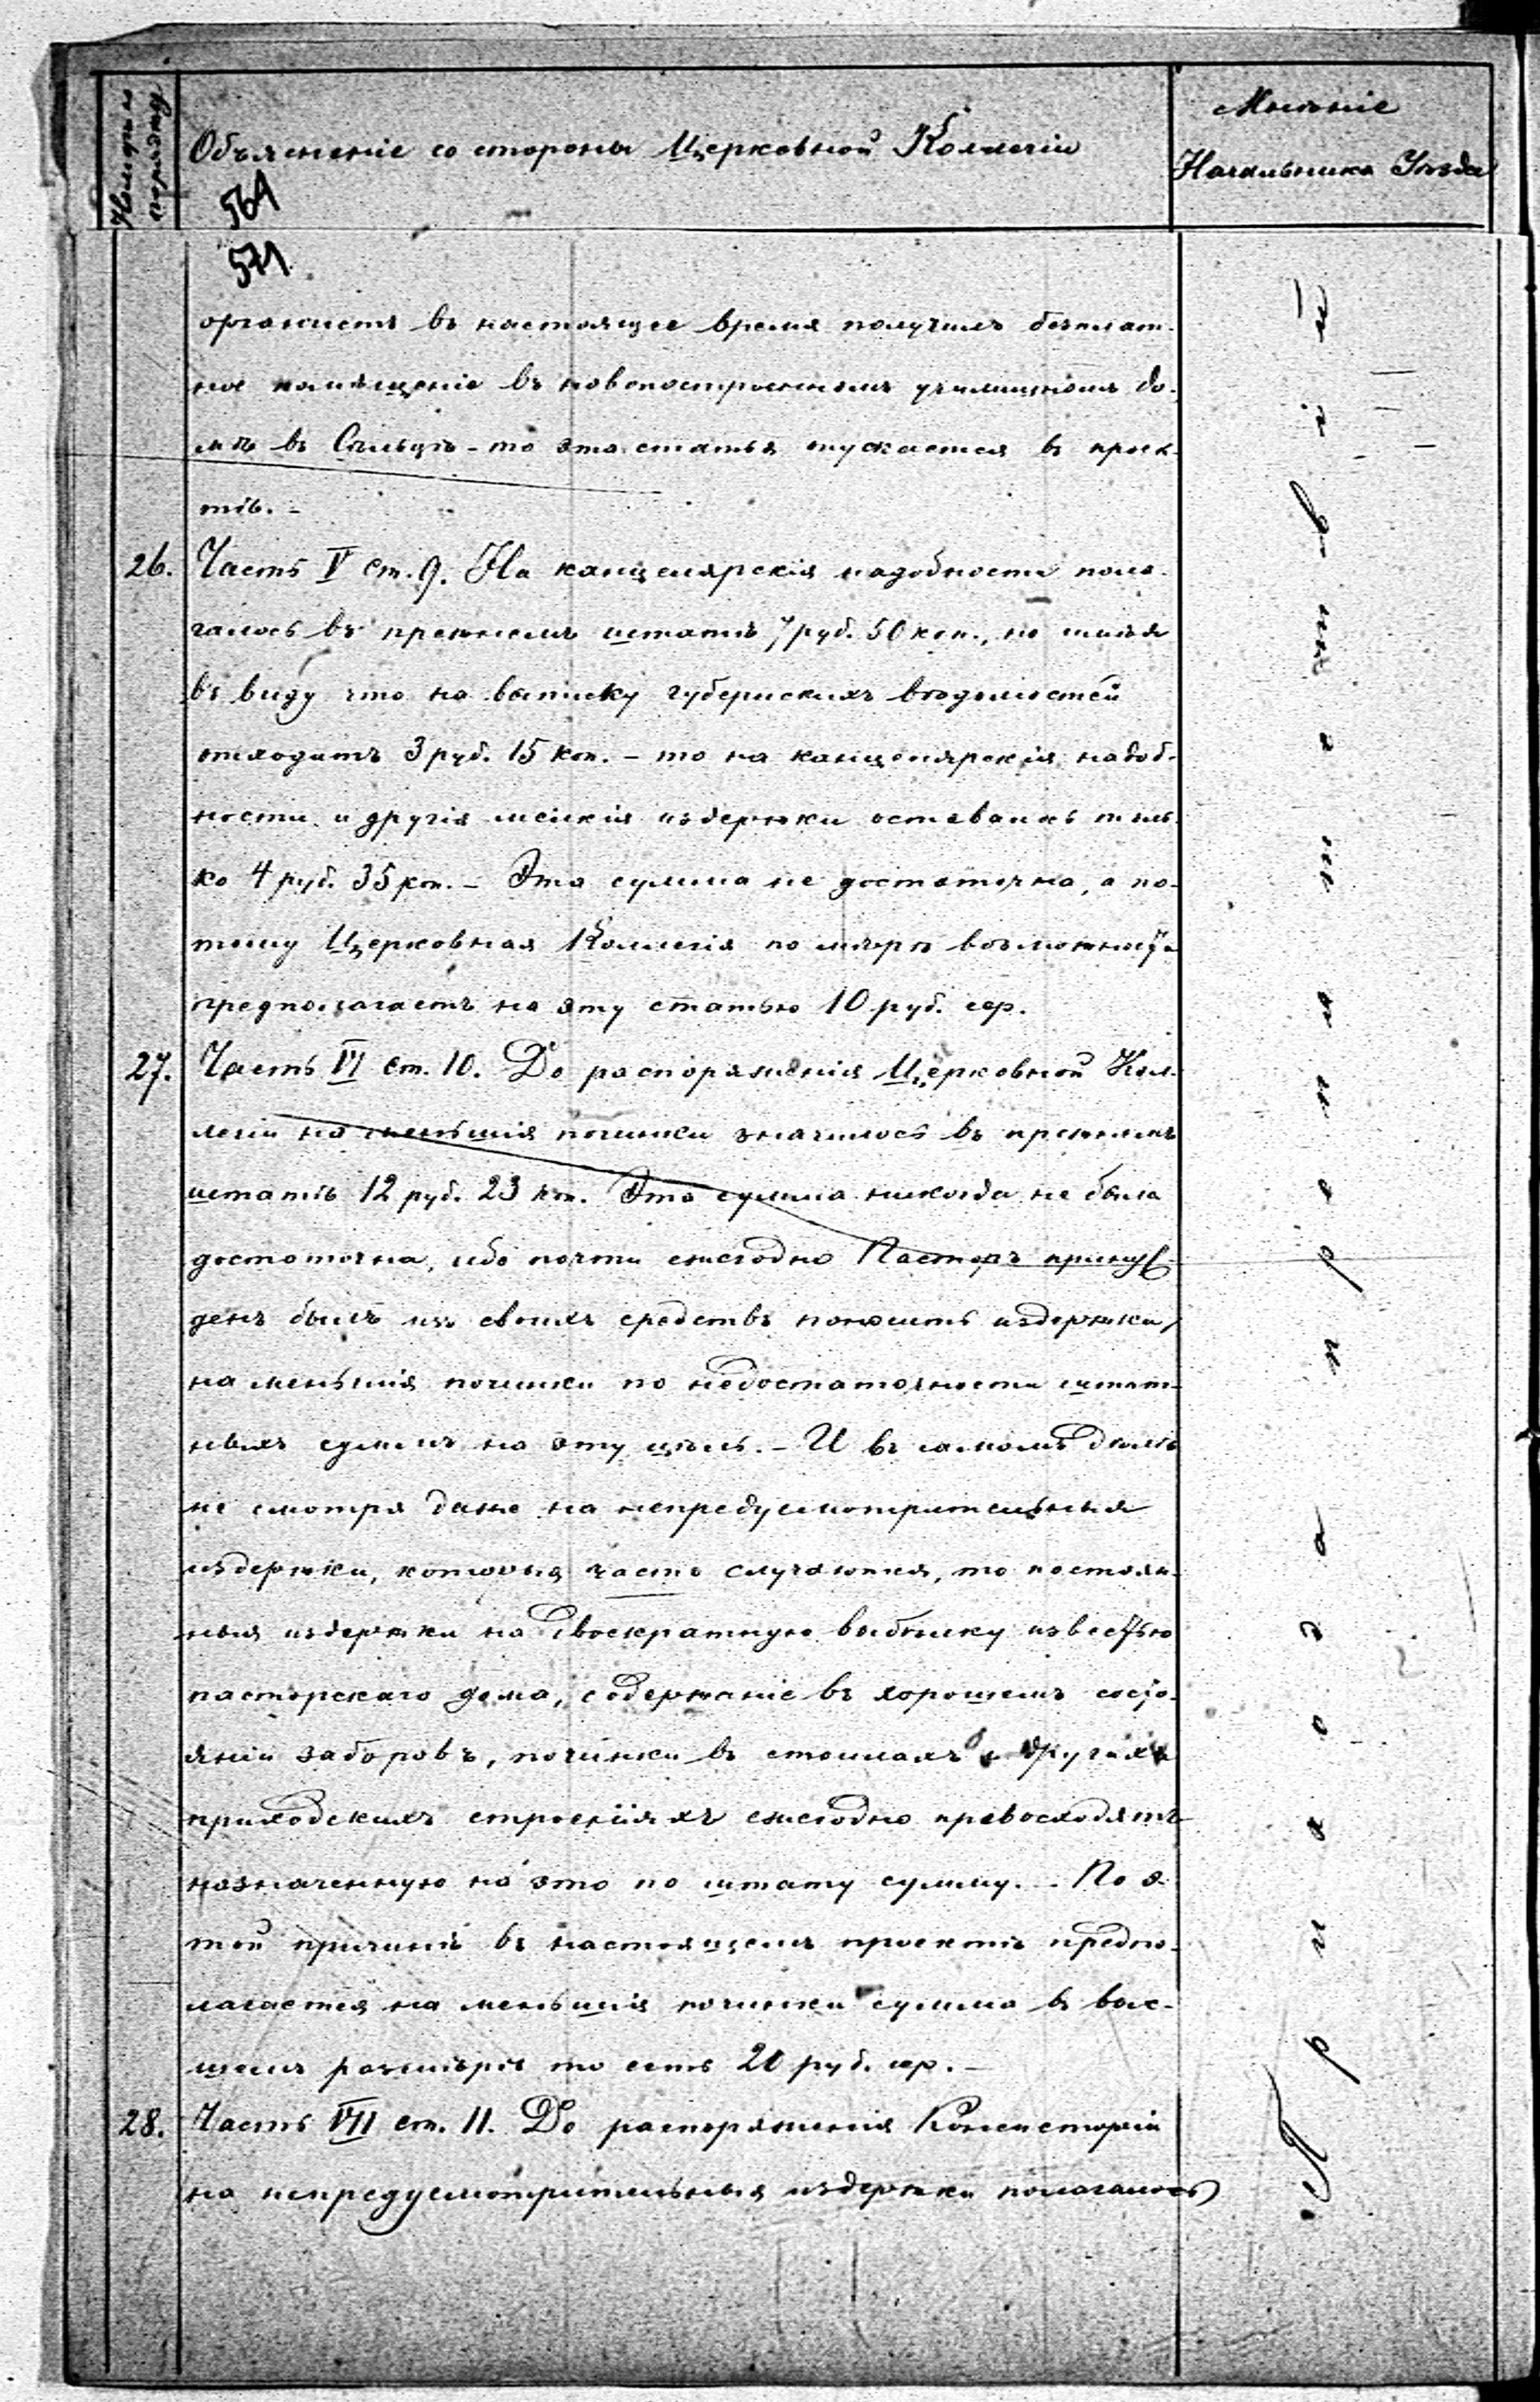 Номеръ по порядку
Объясненіе со стороны Церковной Коллегіи
Мнѣніе
Начальника Уѣзда
564
571
органистъ въ настоящее время получилъ безплат-
ное помѣщеніе въ новопостроенномъ училищномъ до-
мѣ въ Сѣльцѣ - то эта статья опускается въ проек-
тѣ. -
26. Часть V ст. 9. На канцелярскія надобности пола-
галось въ прежнемъ штатѣ 7 руб. 50 коп., но имѣя
въ виду что на выписку губернскихъ вѣдомостей
отходитъ 3 руб. 15 коп. - то на канцелярскія надоб-
ности и другія мелкія издержки оставалось толь-
ко 4 руб. 35 коп. - Эта сумма не достаточна, а по-
тому Церковная Коллегія по мѣрѣ возможности
предполагаетъ на эту статью 10 руб. сер.
27. Часть VI ст. 10. До распоряженія Церковной Кол-
легіи на меньшія починки значилось въ прежнемъ
штатѣ 12 руб. 23 коп. Эта сумма никогда не была
достаточна, ибо почти ежегодно Пасторъ принуж-
денъ былъ изъ своихъ средствъ поносить издержки
на меньшія починки по недостаточности штат-
ныхъ суммъ на эту цѣль. - И въ самомъ дѣлѣ
не смотря даже на непредусмотрительныя
издержки, которыя часто случаются, то постоян-
ныя издержки на двоекратную выбѣлку известью
пасторскаго дома, содержаніе въ хорошемъ состо-
яніи заборовъ, починки въ стоилахъ и другихъ
приходскихъ строеніяхъ ежегодно превосходятъ
назначенную на это по штату сумму. - По э-
той причинѣ въ настоящемъ проектѣ предпо-
лагается на меньшія починки сумма въ выс-
шемъ размѣрѣ то есть 20 руб. сер. -
28. Часть VII ст. 11. До распоряженія Консисторіи
на непредусмотрительныя издержки полагалось